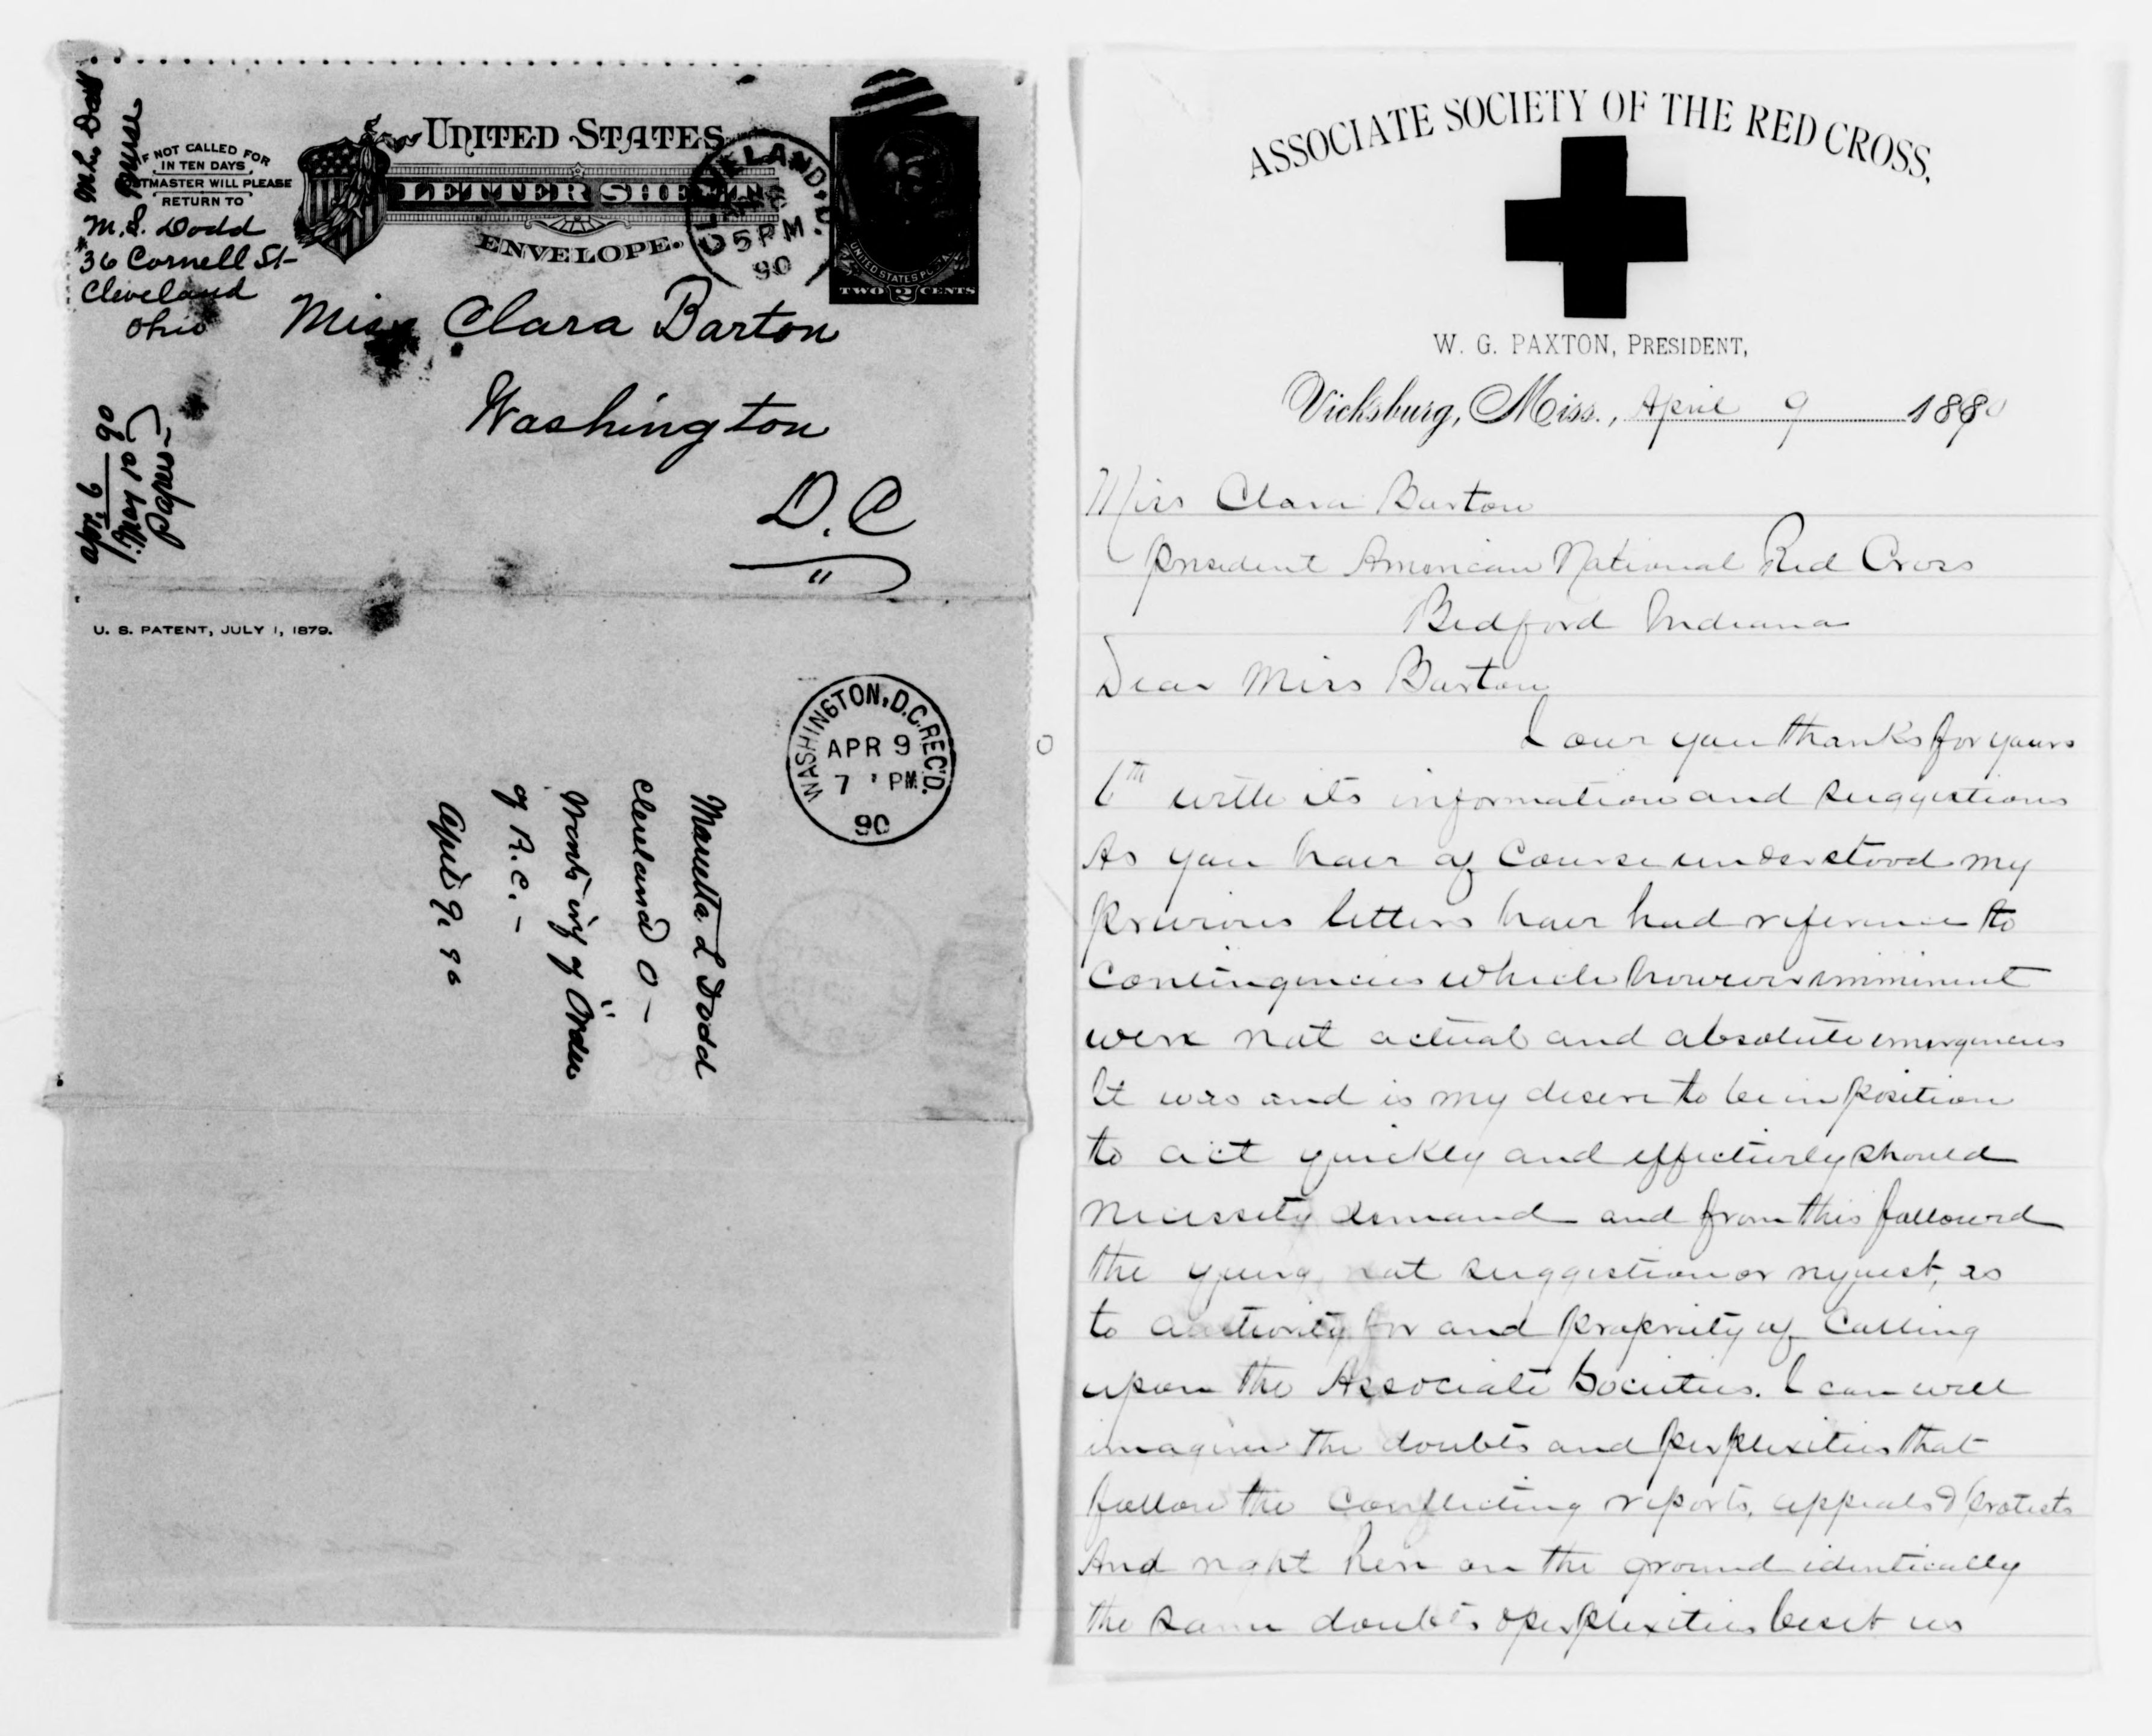 M. L. Dodd
nurse
IF NOT CALLED FOR
IN TEN DAYS
POSTMASTER WILL PLEASE
RETURN TO
M. L. Dodd
36 Cornell St-
Cleveland
Ohio
UNITED STATES
LETTER SHEET
ENVELOPE.
CLEVELAND, O.
5 PM
90
UNITED STATES POSTAGE
TWO 2 CENTS
Miss Clara Barton
Washington
D.C
Apr. 9 90
U. S. PATENT, JULY 1, 1879.
WASHINGTON, D.C. REC'D.
APR 9
7 PM
90
L Dodd
Cleveland O -
of Order
of R. C. -
April 9. 90
ASSOCIATE SOCIETY OF THE RED CROSS,
W. G. PAXTON, PRESIDENT,
Vicksburg, Miss., April 9 1890
Miss Clara Barton
President American National Red Cross
Bedford Indiana
Dear Miss Barton
I owe you thanks for yours
6th with its information and suggestions
As you have of course understood my
previous letters have had reference to
Contingencies which however imminent
were not actual and absolute emergencies
It was and is my desire to be in position
to act quickly and effectively should
necessity demand and from this followed
the suggestion or request, as
to authority for and propriety of Calling
upon the Associate Societies. I can well
imagine the doubts and perplexities that
follow the conflicting reports, appeals & protests
And right here on the ground identically
the same doubts & perplexities beset us